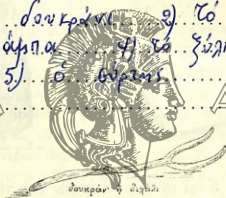 δουκράνι 2) Τό
4) τό ξύλι
5) ὁ σύρτης
δουκράν ἤ διχάλι